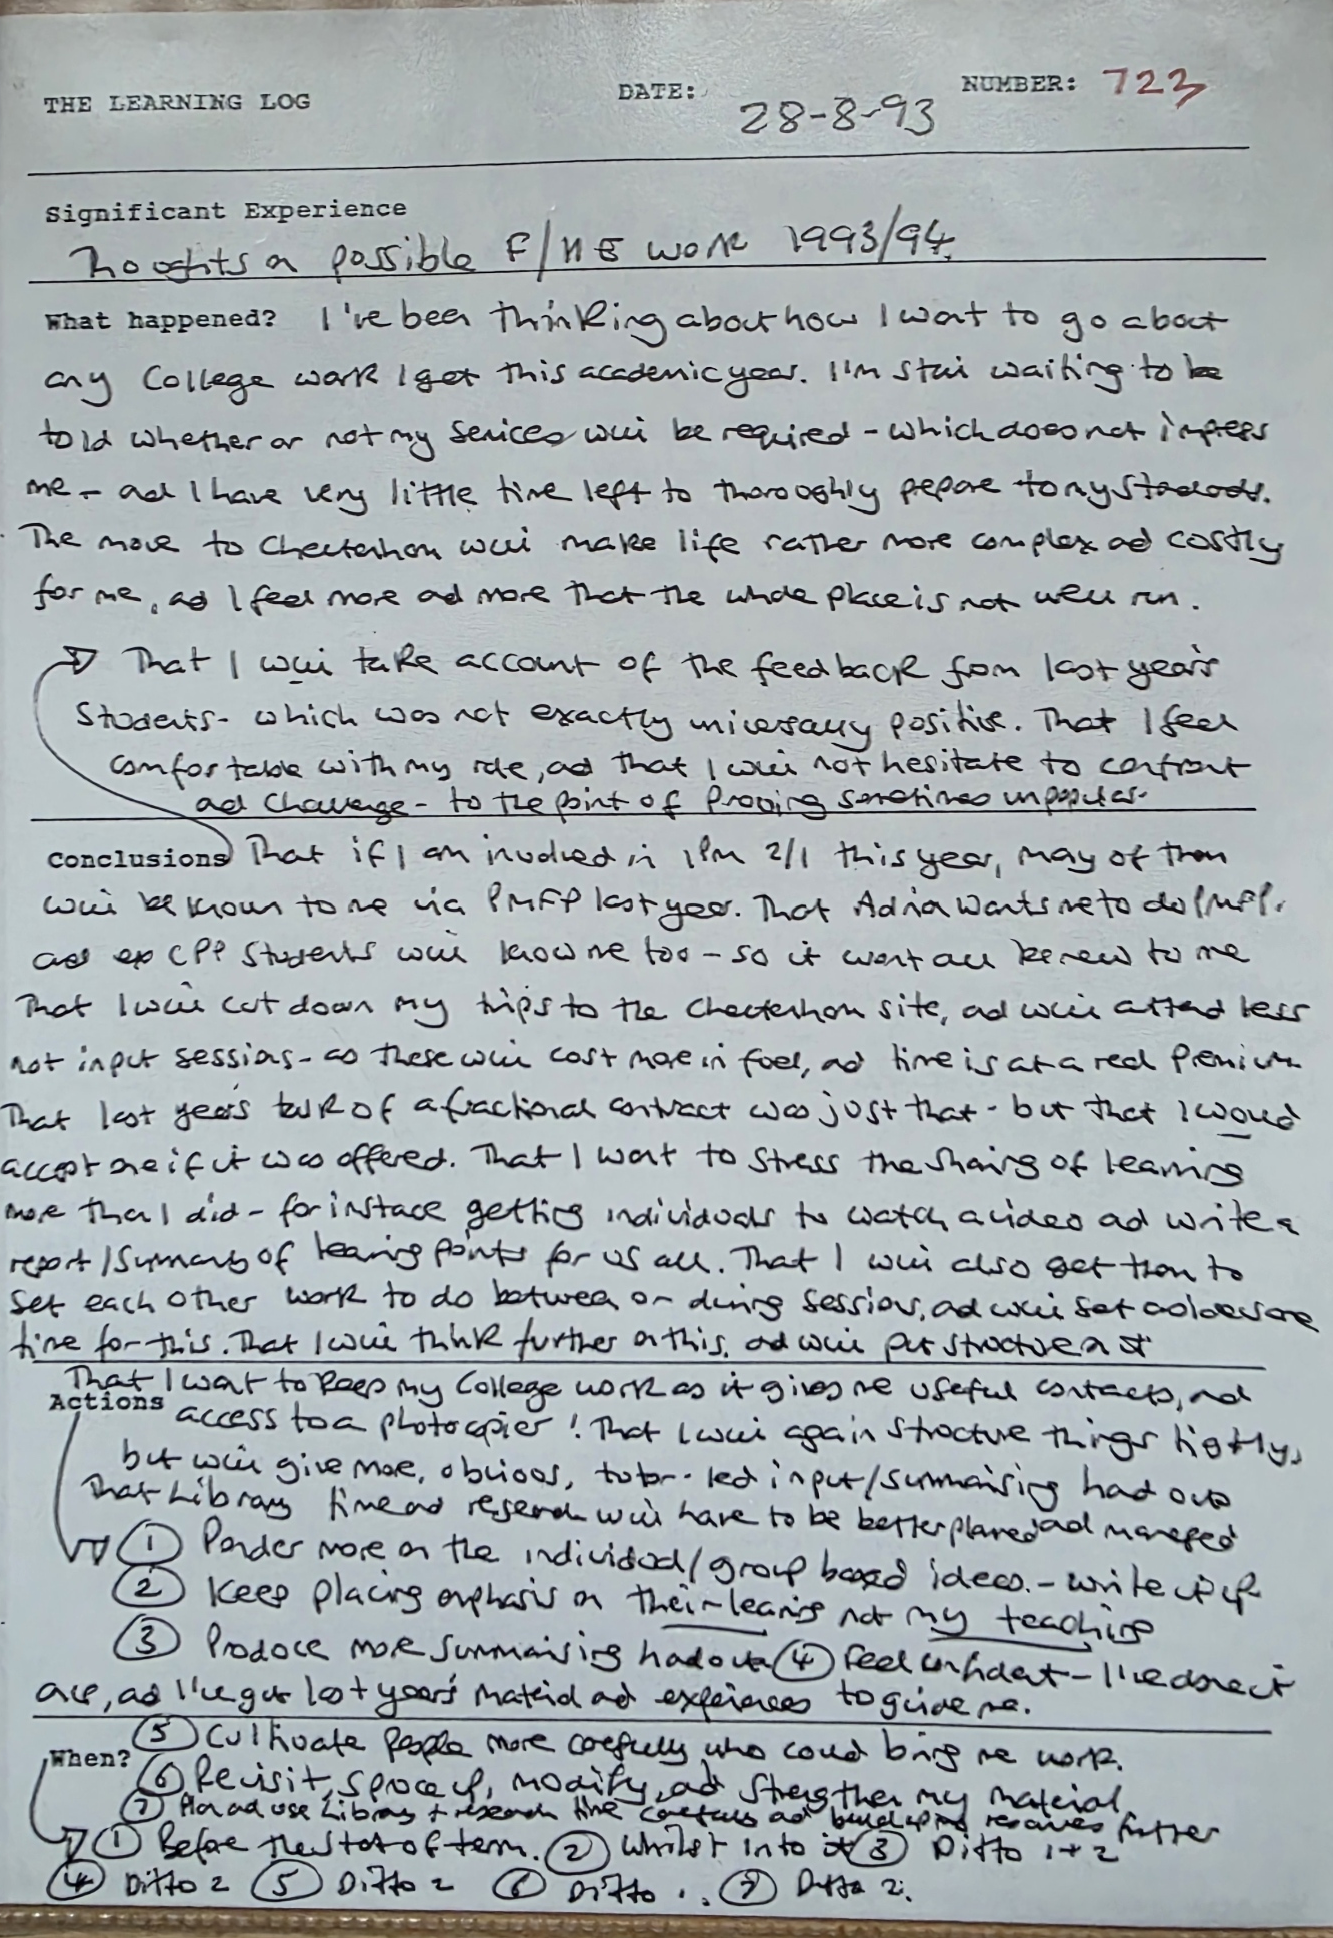 THE LEARNING LOG DATE: 28-8-93 NUMBER: 723
Significant Experience
Thoughts on possible F/HE work 1993/94.
What happened? I've been thinking about how I want to go about
any College work I get this academic year. I'm still waiting to be
told whether or not my services will be required - which does not impress
me - and I have very little time left to thoroughly prepare to my standards.
The move to Cheltenham will make life rather more complex and costly
for me, and I feel more and more that the whole place is not well run.
That I will take account of the feedback from last year's
students - which was not exactly universally positive. That I feel
comfortable with my role, and that I will not hesitate to confront
and challenge - to the point of proving sometimes unpopular.
Conclusions That if I am involved in IPM 2/1 this year, many of them
will be known to me via PMFP last year. That Adrian wants me to do PMFP.
and ex CPP students will know me too - so it won't all be new to me
That I will cut down my trips to the Cheltenham site, and will attend less
not input sessions - as these will cost more in fuel, and time is at a real premium
That last year's talk of a fractional contract was just that - but that I would
accept one if it was offered. That I want to stress the sharing of learning
more than I did - for instance getting individuals to watch a video and write a
report/summary of learning points for us all. That I will also get them to
set each other work to do between or during sessions, and will set aside some
time for this. That I will think further on this, and will put structure on it
That I want to keep my College work as it gives me useful contacts, and
Actions access to a photocopier! That I will again structure things tightly,
but will give more, obvious, tutor-led input/summarising handouts
That Library time and research will have to be better planned and managed
① Ponder more on the individual/group based ideas. - write it up
② Keep placing emphasis on their learning not my teaching
③ Produce more summarising handouts ④ Feel confident - I've done it
once, and I've got last year's material and experiences to guide me.
⑤ Cultivate people more carefully who could bring me work.
When? ⑥ Revisit, spruce up, modify, and strengthen my material
⑦ Plan and use Library + research time carefully and build up my resources further
① Before the start of term. ② Whilst into it ③ Ditto 1+2
④ Ditto 2 ⑤ Ditto 2 ⑥ Ditto 1. ⑦ Ditto 2.